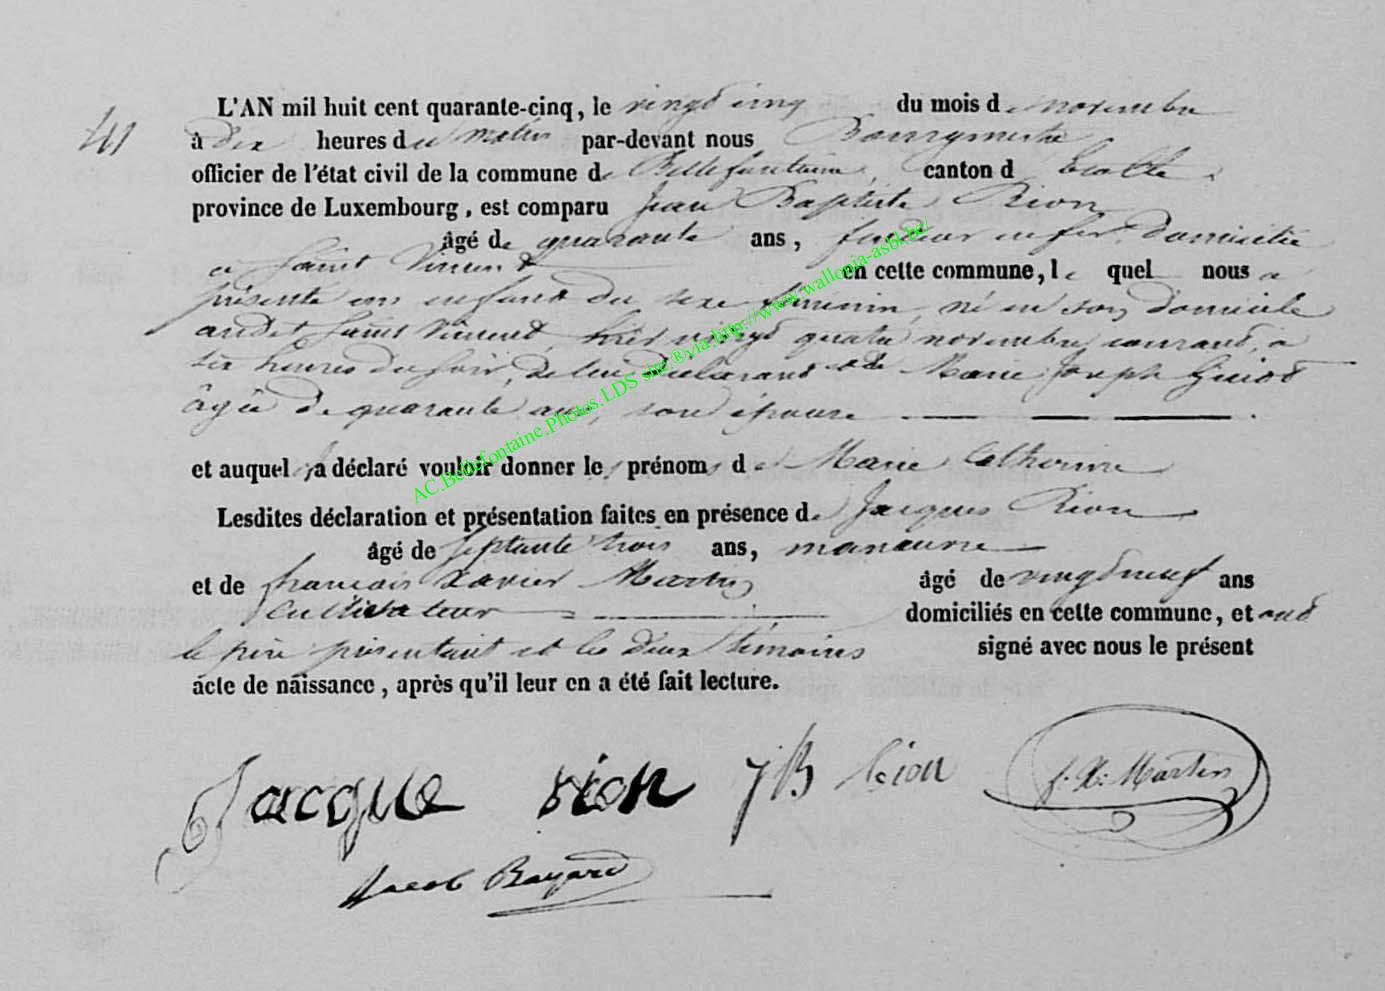 41
L'AN mil huit cent quarante-cinq, le vingt cinq du mois de novembre
à dix heures du matin par-devant nous Bourgmestre
officier de l'état civil de la commune de Bellefontaine, canton d'Etalle,
province de Luxembourg, est comparu Jean Baptiste Rion
âgé de quarante ans, fondeur en fer, domicilié
à Saint Vincent en cette commune, lequel nous a
présenté un enfant du sexe féminin, né en son domicile
audit Saint Vincent, hier vingt quatre novembre courant, à
six heures du soir, de lui déclarant et de Marie Joseph Guiot
âgée de quarante ans, son épouse
et auquel il a déclaré vouloir donner les prénoms de Marie Catherine
Lesdites déclaration et présentation faites en présence de Jacques Rion
âgé de septante trois ans, manœuvre
et de françois Xavier Martin âgé de vingt neuf ans
cultivateur domiciliés en cette commune, et ont
le père présentant et les deux témoins signé avec nous le présent
acte de naissance, après qu'il leur en a été fait lecture.
Jacque rion JB Rion f. X. Martin
Jacob Bayard
AC.Bellefontaine.Photos.LDS sur ®via:http://www.wallonia-asbl.be/